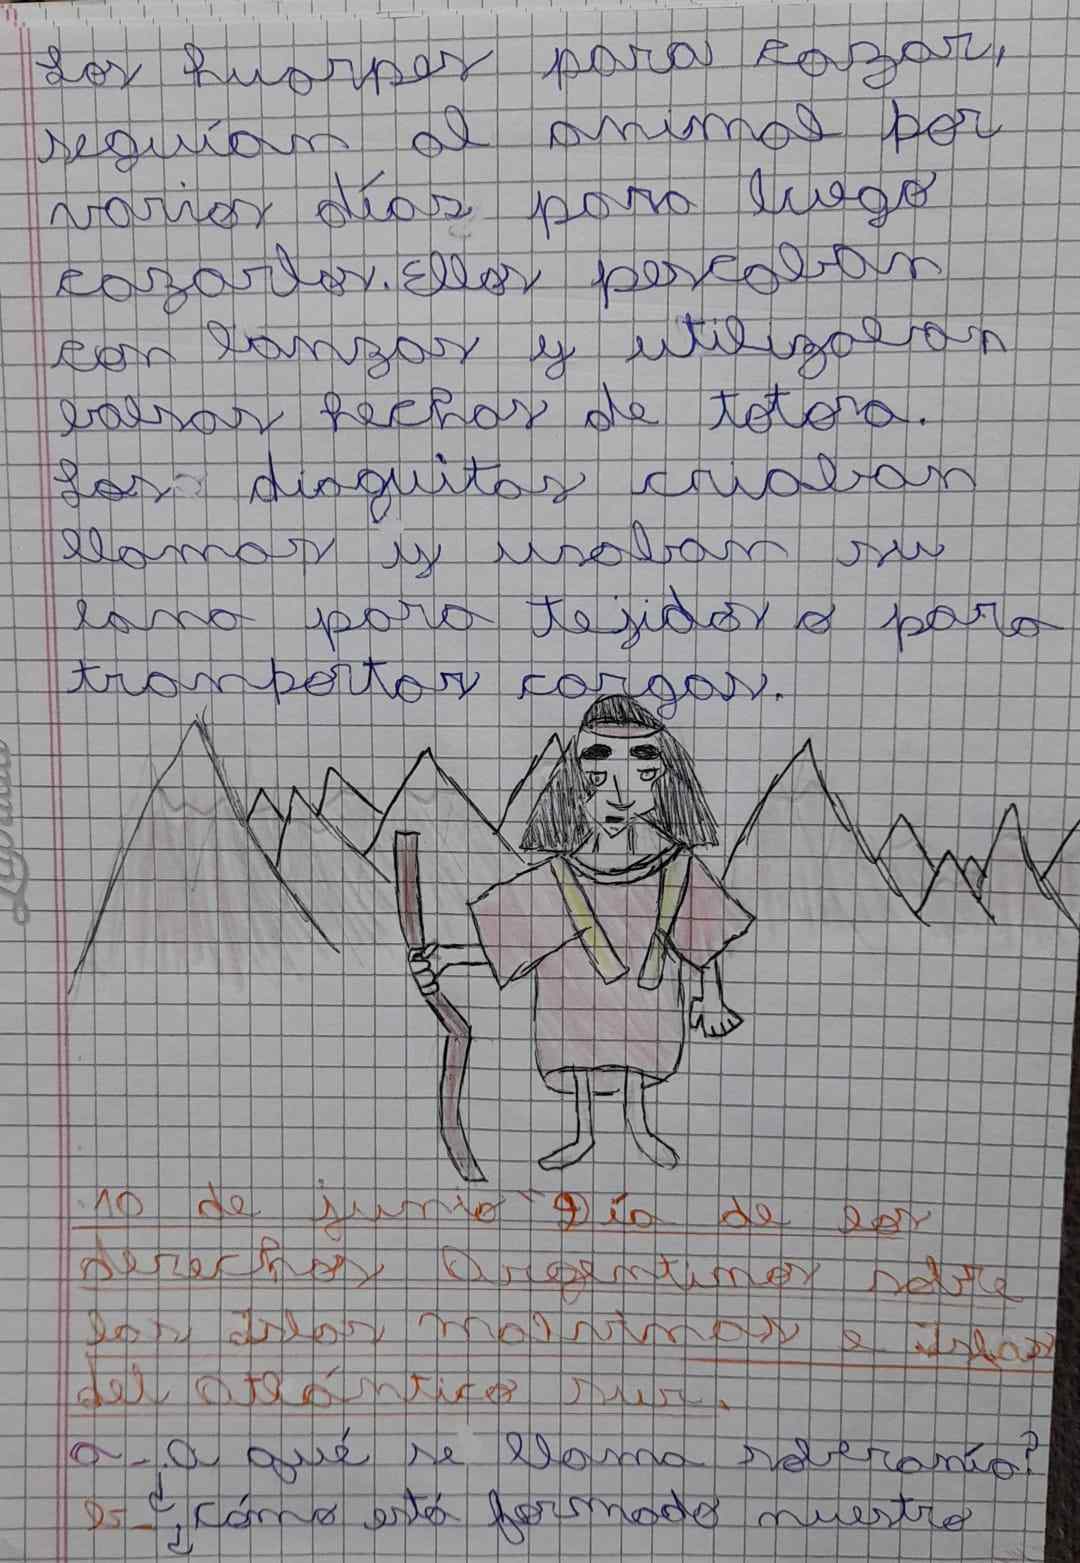 Los huarpes para cazar,
seguían al animal por
varios días para luego
cazarlos. Ellos pescaban
con lanzas y utilizaban
balsas hechas de totora.
Los diaguitas criaban
llamas y usaban su
lana para tejidos o para
transportar cargas.
10 de junio "Día de los
derechos Argentinos sobre
las islas malvinas e islas
del atlántico sur.
a- A qué se llama soberanía?
b- ¿cómo está formado nuestro